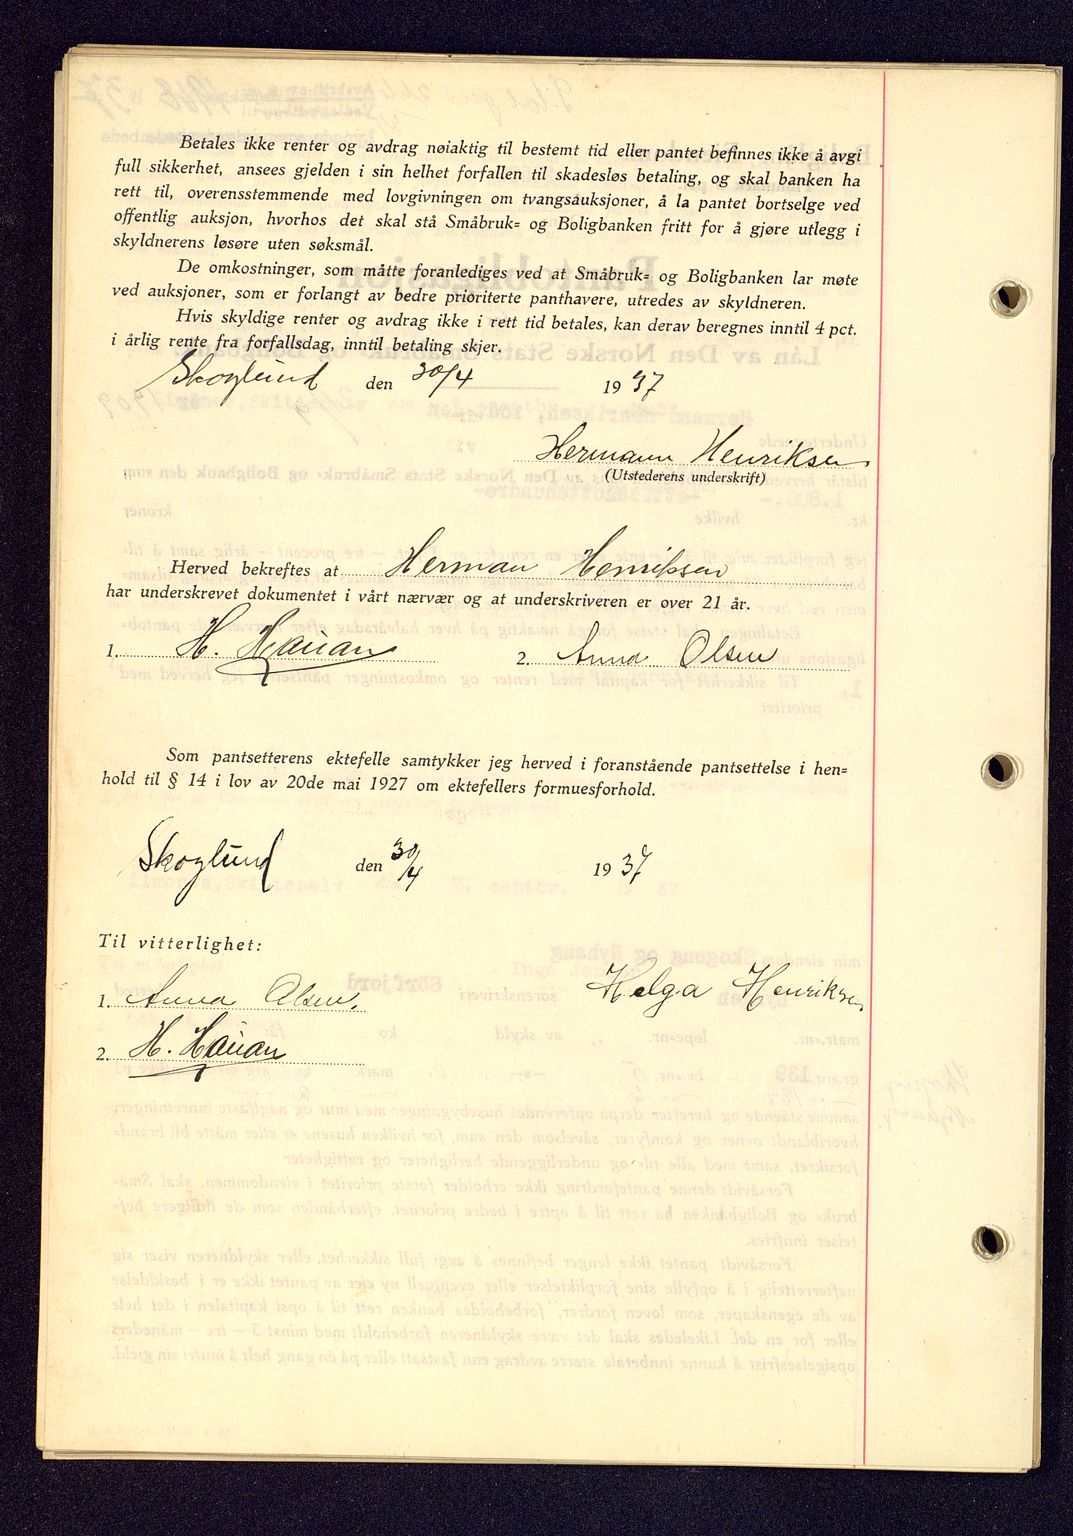 Betales ikke renter og avdrag nøiaktig til bestemt tid eller pantet befinnes ikke å avgi
full sikkerhet, ansees gjelden i sin helhet forfallen til skadesløs betaling, og skal banken ha
rett til, overensstemmende med lovgivningen om tvangsauksjoner, å la pantet bortselge ved
offentlig auksjon, hvorhos det skal stå Småbruk= og Boligbanken fritt for å gjøre utlegg i
skyldnerens løsøre uten søksmål.
De omkostninger, som måtte foranlediges ved at Småbruk= og Boligbanken lar møte
ved auksjoner, som er forlangt av bedre prioriterte panthavere, utredes av skyldneren.
Hvis skyldige renter og avdrag ikke i rett tid betales, kan derav beregnes inntil 4 pct.
i årlig rente fra forfallsdag, inntil betaling skjer.
Skoglund den 30/4 1937
Hermann Henriksen
(Utstederens underskrift)
Herved bekreftes at Herman Henriksen
har underskrevet dokumentet i vårt nærvær og at underskriveren er over 21 år.
1. H. Hauan 2. Anna Olsen
Som pantsetterens ektefelle samtykker jeg herved i foranstående pantsettelse i hen=
hold til § 14 i lov av 20de mai 1927 om ektefellers formuesforhold.
Skoglund den 30/4 1937
Til vitterlighet:
1. Anna Olsen. Helga Henriksen
2. H. Hauan